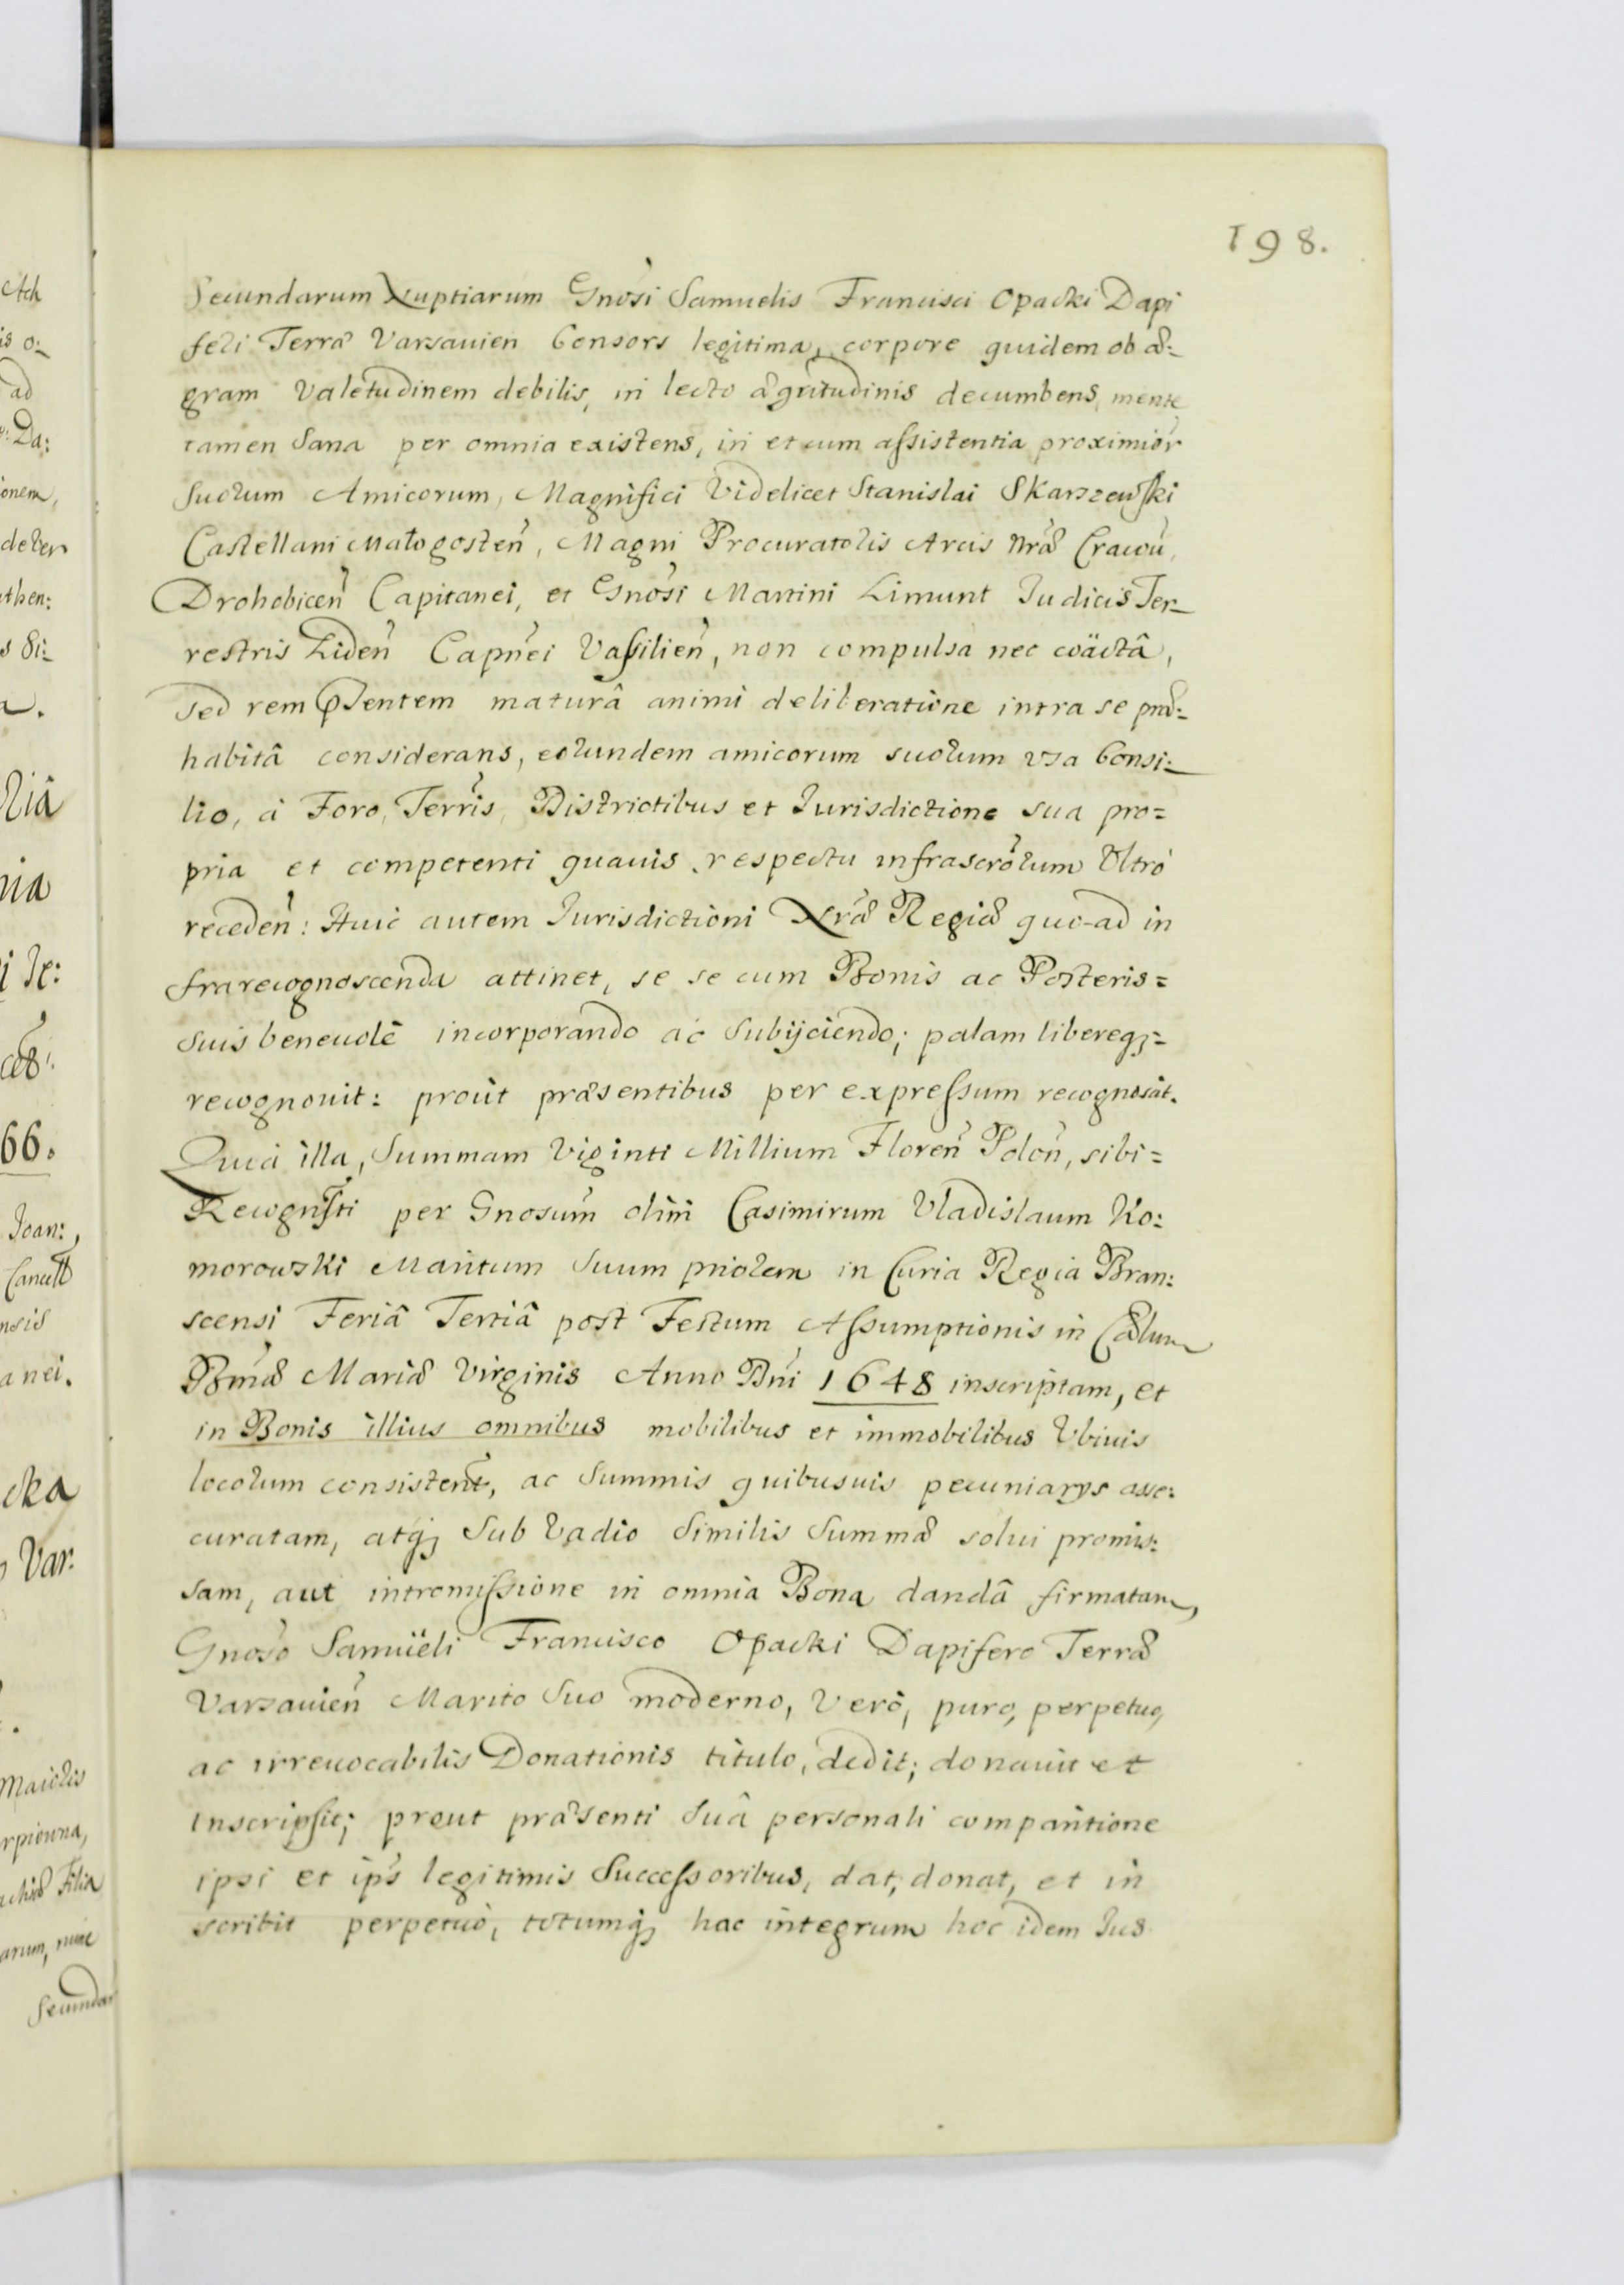 198.
Secundarum Nuptiarum Gnosi Samuelis Francisci Opacki Dapi
feri Terræ Varsauien Consors legitima, corpore quidem ob æ:
gram Valetudinem debilis, in lecto ægritudinis decumbens, mente
tamen Sana per omnia existens, in et cum assistentia proximior
Suorum Amicorum, Magnifici Videlicet Stanislai Skarszewski
Castellani Małogosten, Magni Procuratoris Arcis Nræ Cracou,
Drohobicen Capitanei, et Gnosi Martini Limunt Judicis Ter_
restris Liden Capnei Vassilien, non compulsa nec coäctâ,
Sed rem pSentem maturâ animi deliberatione intra se præ:
habitâ considerans, eorundem amicorum suorum vsa Consi:
lio, à Foro, Terris, Districtibus et Jurisdictione sua pro=
pria et competenti quauis respectu infrascrorum Vltrò
receden: Huic autem Jurisdictioni Nræ Regiæ quo-ad in
frarecognoscenda attinet, se se cum Bonis ac Posteris=
suis beneuolè incorporando ac Subijciendo; palam libereq;=
recognouit: proùt præsentibus per expressum recognoscit.
Quia illa, Summam Viginti Millium Floren Polon, sibi=
Recognsti per Gnosum olim Casimirum Vladislaum Ko:
morowski Maritum Suum priorem in Curia Regia Bran:
scensi Feriâ Tertiâ post Festum Assumptionis in Cælum
Bmæ Mariæ Virginis Anno Dni 1648 inscriptam, et
in Bonis illius omnibus mobilibus et immobilibus Vbiuis
locorum consistent, ac Summis quibusuis pecuniarys asse:
curatam, atq; Sub Vadio Similis Summæ solui promis:
sam, aut intromissione in omnia Bona dandâ firmatam,
Gnoso Samüeli Francisco Opacki Dapifero Terræ
Varsauien Marito Suo moderno, Verò, puro, perpetuo,
ac irreuocabilis Donationis titulo, dedit; donauit et
inscripsit; prout præsenti Suâ personali comparitione
ipsi et ips legitimis Successoribus, dat, donat, et in
scribit perpetuò, totumq; hac integrum hoc idem Jus